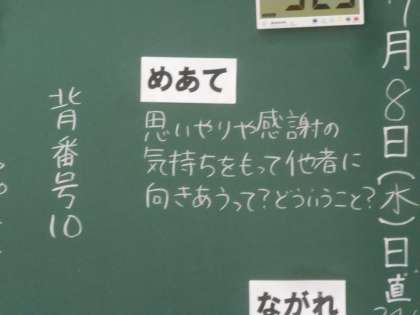 7月8日(水)日直
めあて
思いやりや感謝の
気持ちをもって他者に
向きあうって?どういうこと?
背番号10
ながれ